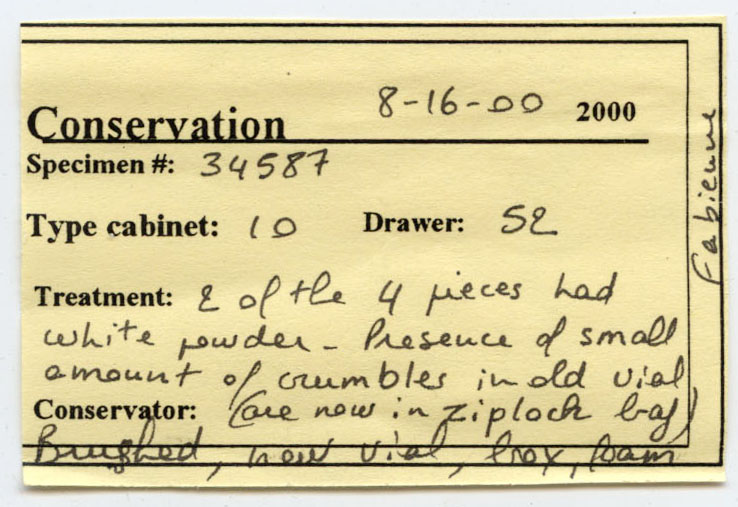 8-16-00 2000
Conservation
Specimen #: 34587
Type cabinet: 10 Drawer: 52
Treatment: 2 of the 4 pieces had
white powder - Presence of small
amount of crumbles in old vial
Conservator: (are now in ziplock bag)
Brushed, new vial, box, foam
Fabienne